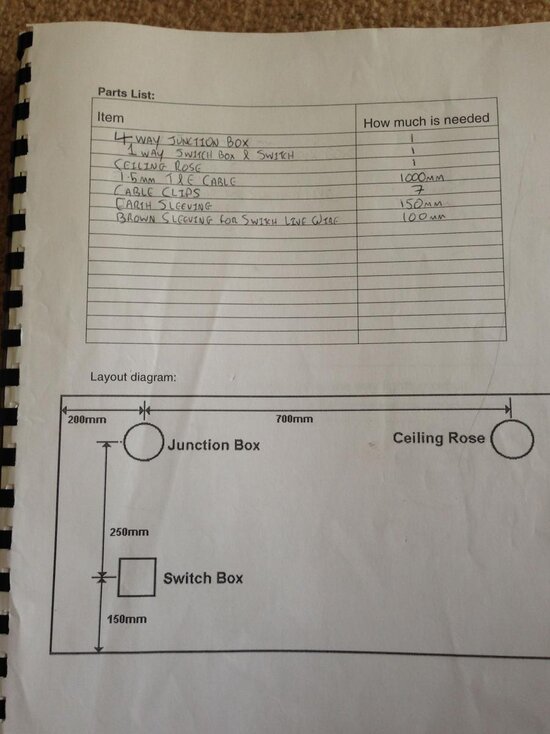 Parts List:
Item How much is needed
4 WAY JUNCTION BOX 1
1 WAY SWITCH BOX & SWITCH 1
CEILING ROSE 1
1.5mm T&E CABLE 1000mm
CABLE CLIPS 7
EARTH SLEEVING 150mm
BROWN SLEEVING FOR SWITCH LIVE WIRE 100mm
Layout diagram:
200mm 700mm
Junction Box Ceiling Rose
250mm
Switch Box
150mm